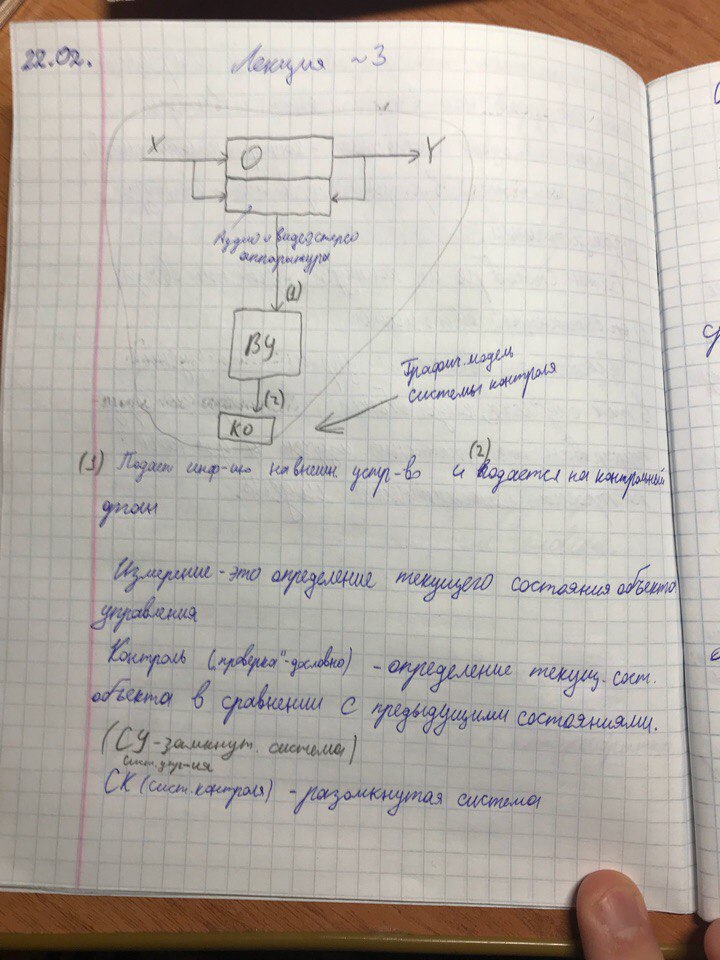 22.02.
Лекция ~3
X
О
Y
Аудио и видео, стерео
аппаратура
(1)
ВУ
(2)
КО
Графич. модель
системы контроля
(1) Подает инф-ию на внешн. устр-во и (2) подается на контрольный
орган
Измерение - это определение текущего состояния объекта
управления
Контроль („проверка"-дословно) - определение текущ. сост.
объекта в сравнении с предыдущими состояниями.
(СУ - замкнут. система)
сист. упр-ия
СК (сист. контроля) - разомкнутая система